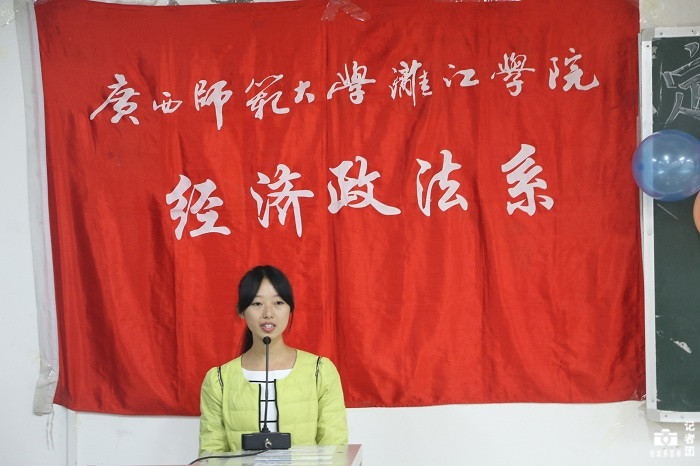 廣西師範大學漓江學院
经济政法系
记者团